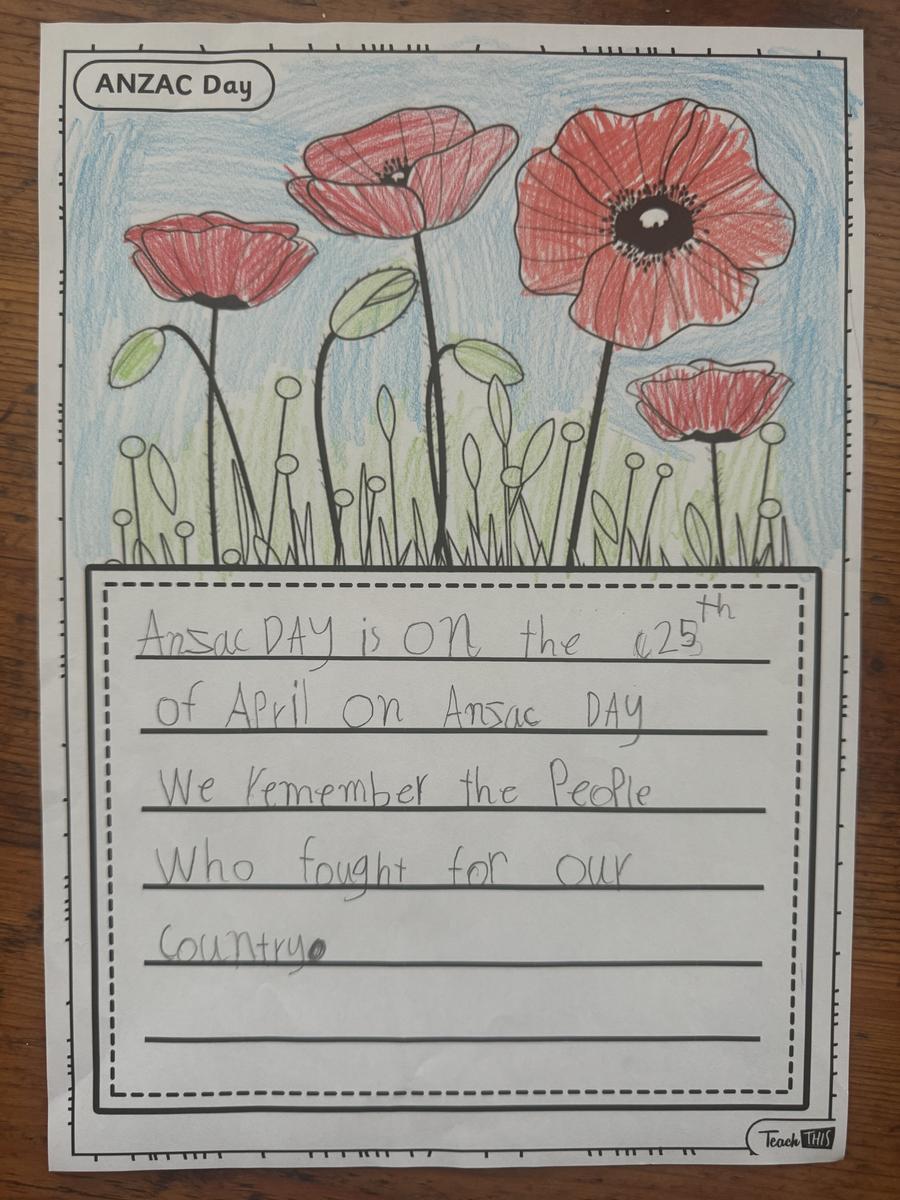 ANZAC Day
Ansac DAY is on the 25th
of April on Ansac DAY
We remember the People
Who fought for our
Country.
Teach THIS